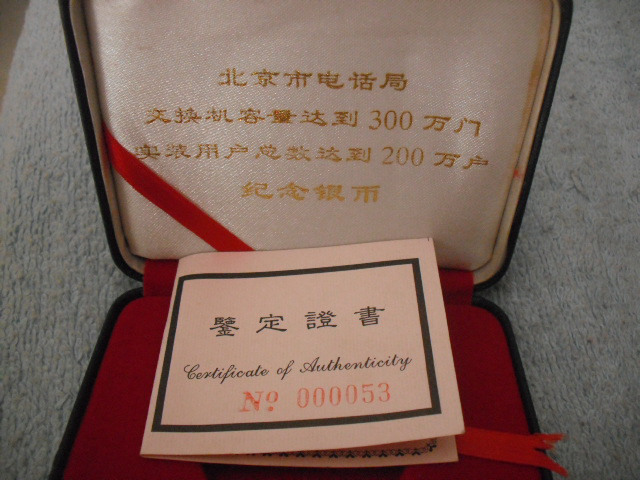 北京市电话局
交换机容量达到 300 万门
实装用户总数达到 200 万户
纪念银币
鑒定證書
Certificate of Authenticity
No. 000053